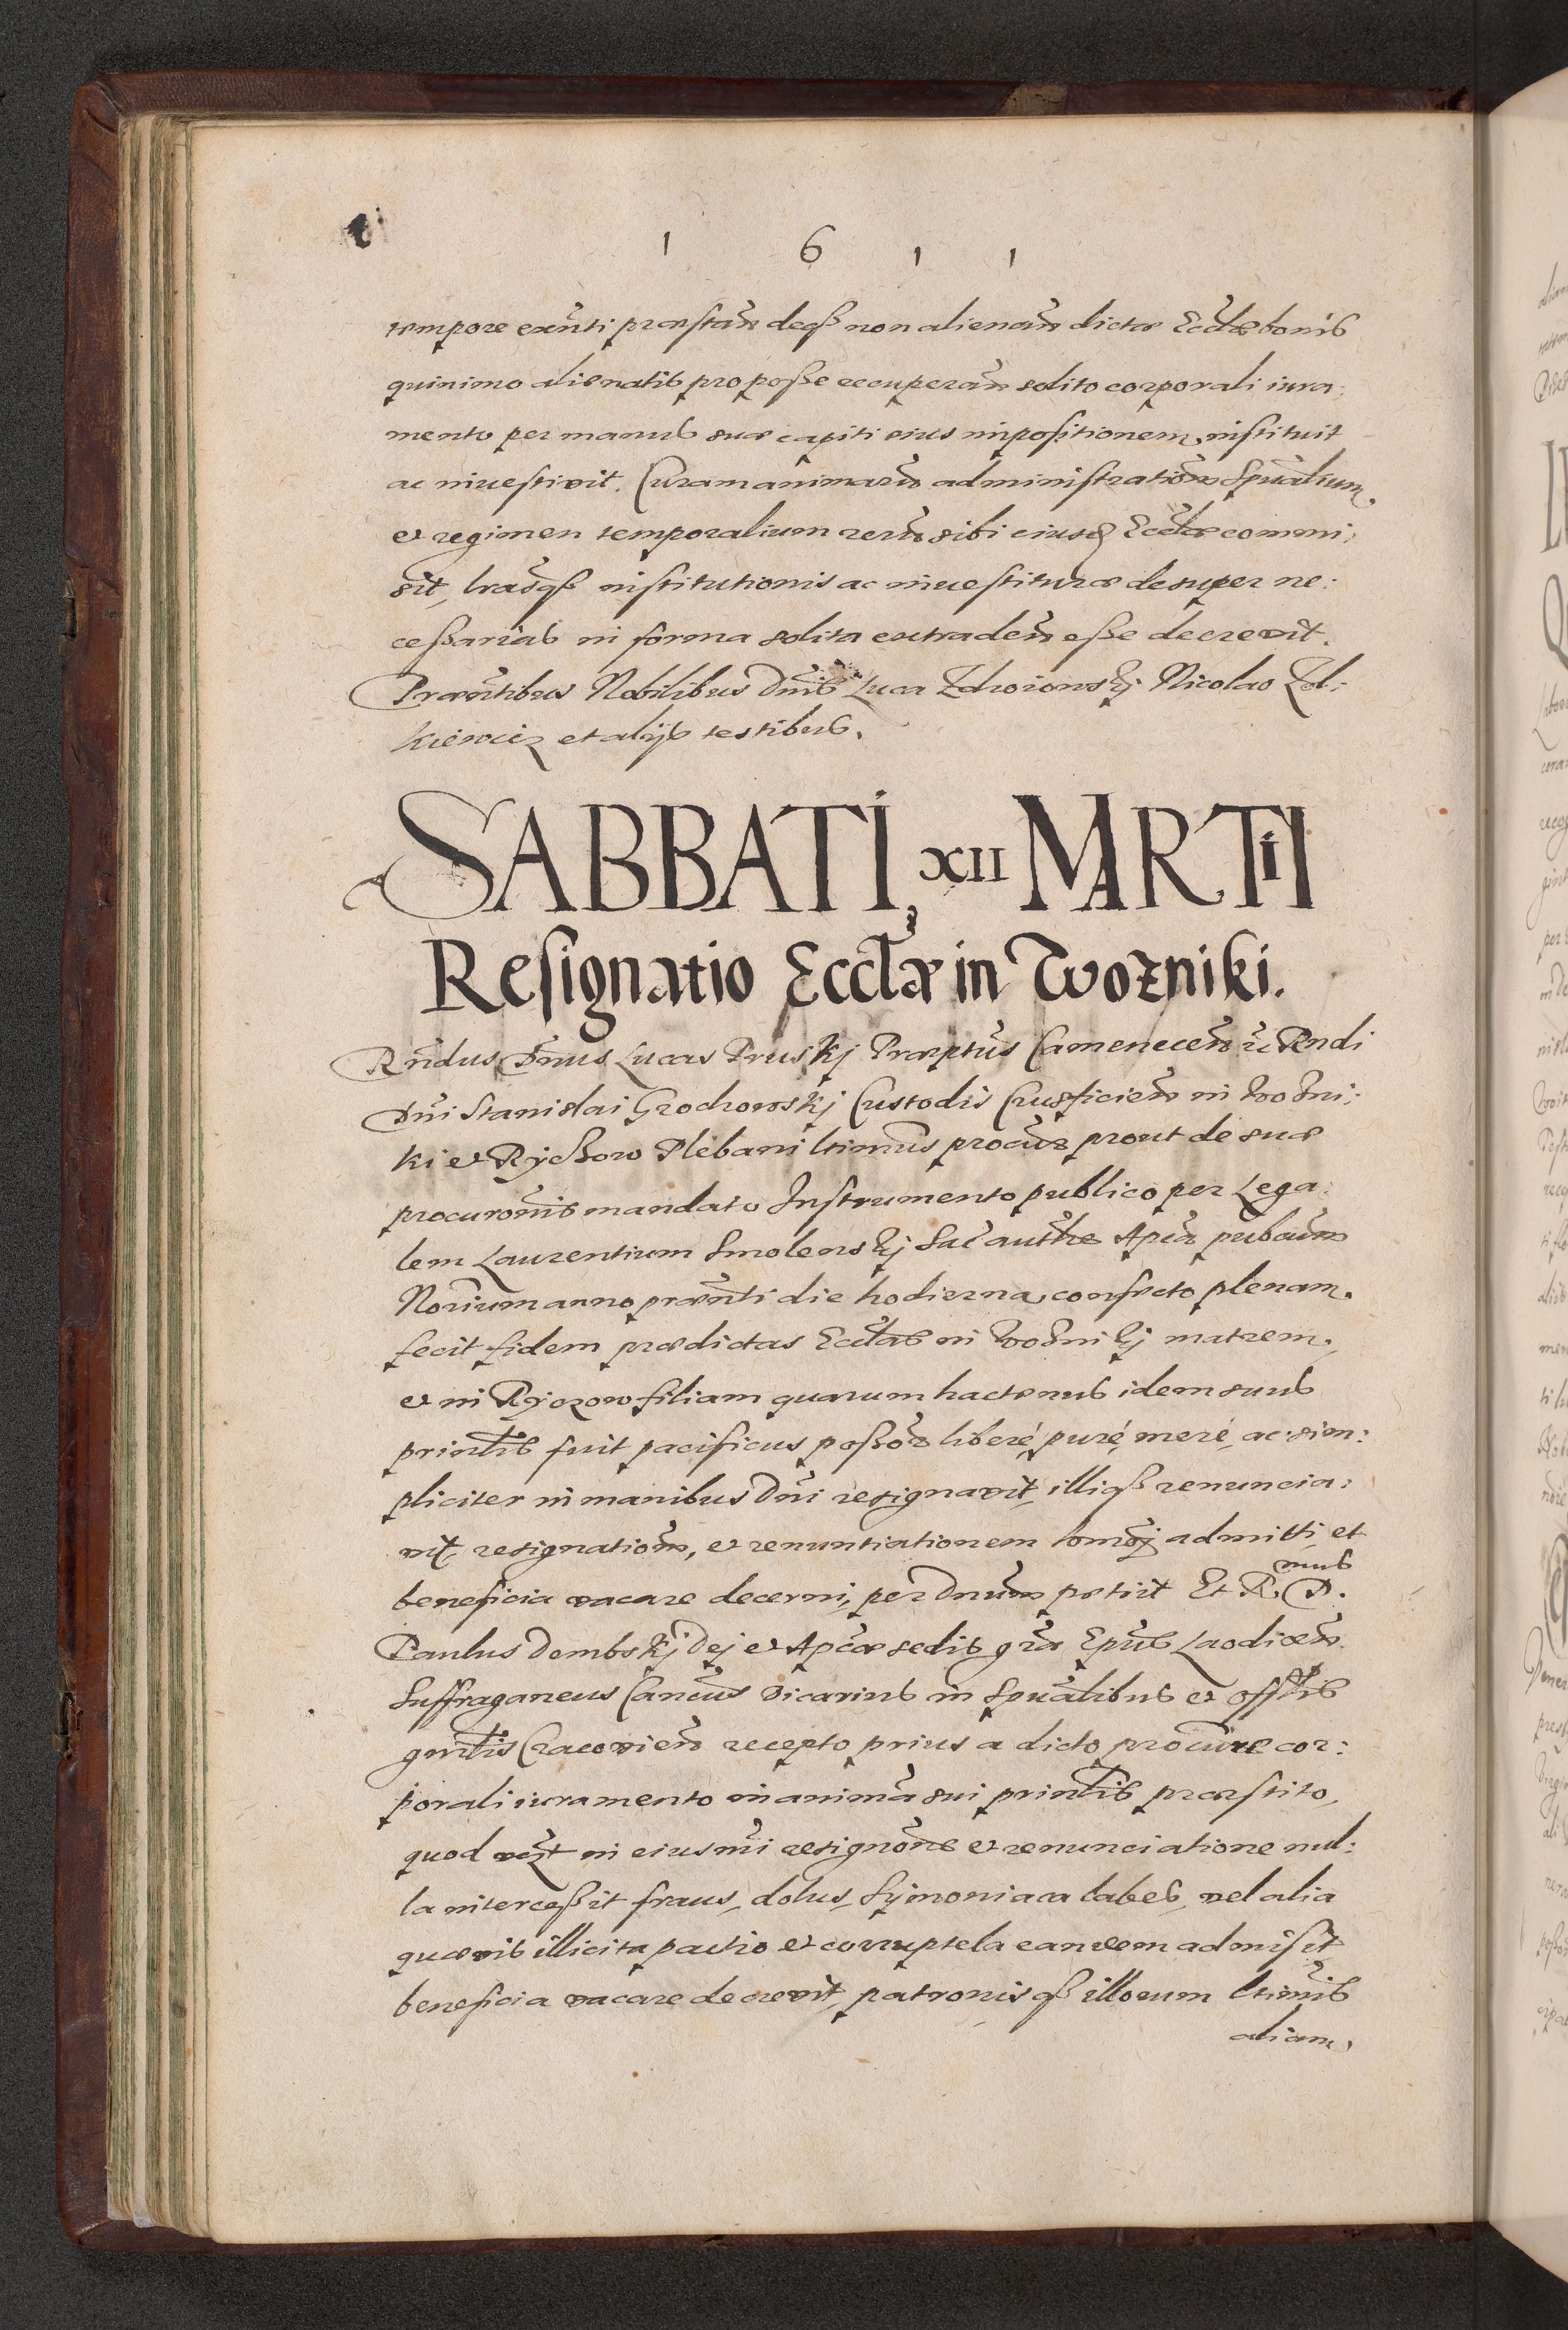 1 6 1 1
tempore exñti præstañ deqꝫ non alienañ dictæ Eccłæ bonis
quinimo alienatis pro posse recuperañ solito corporali iura:
mento per manus suæ capiti eius impositionem, instituit
ac investivit. Curam animarũ administrationẽ Spũalium,
et regimen temporalium rerũ sibi eiusd Eccłæ commi:
sit, lrasqꝫ institutionis ac investituræ desuper ne:
cessarias in forma solita extradeñ esse decrevit.
Præsñtibus Nobilibus Dñis Luca Zdroiowskj Nicolao Zol:
kiewicz et alijs testibus.
SABBATI, XII MARTII
Resignatio Eccłæ in Woźniki.
Rñdus Dñus Lucas Pruskj Præptũs Camenecẽn ac Rñdi
Dñi Stanislai Grochowskj Custodis Crusficieñ in Wozni:
ki et Ryczow Plebani ltimũs procũr prout de suæ
procurõnis mandato Instrumento publico per Lega:
lem Laurentium Smolenskj Sac̃ authe Aplĩca pubcũm
Norium anno præsñti die hodierna, confecto plenam,
fecit fidem prædictas Eccłas in Woznikj matrem,
et in Ryczow filiam quarum hactenus idem suus
prinłis fuit pacificus possõr liberé, puré, meré, ac sim:
pliciter in manibus Dñi resignavit, illisqꝫ renuncia:
vit, resignationẽ, et renuntiationem homõi admitti, et
beneficia vacare decerni, per Dnũm petiit Et R.mus D.
Paulus Dombskj Dej et Aplĩcæ sedis grã Epũs Laodiceñ
Suffraganeus Cancũs Vicarius in Spũalibus et offłis
gnrłis Cracovieñ recepto prius a dicto procũre cor:
porali iuramento in animã sui prinłis præstito,
quod vẽt in eiusmĩ resignõne et renunciatione nul:
la intercessit fraus, dolus, Sÿmoniaca labes, vel alia
quævis illicita pactio et corruptela eandem admisit
beneficia vacare decrevit, patronisqꝫ illorum ltimĩs
aliam,